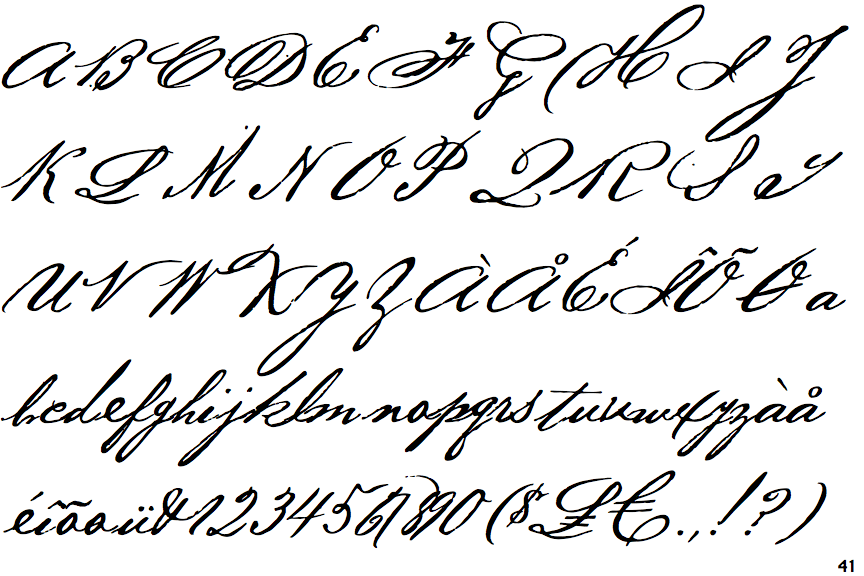 ABCDEFGHIJ
KLMNOPQRST
UVWXYZÀÅÉÎÕØa
bcdefghijklmnopqrstuvwxyzàå
éîõøü&1234567890($£€.,!?)
41